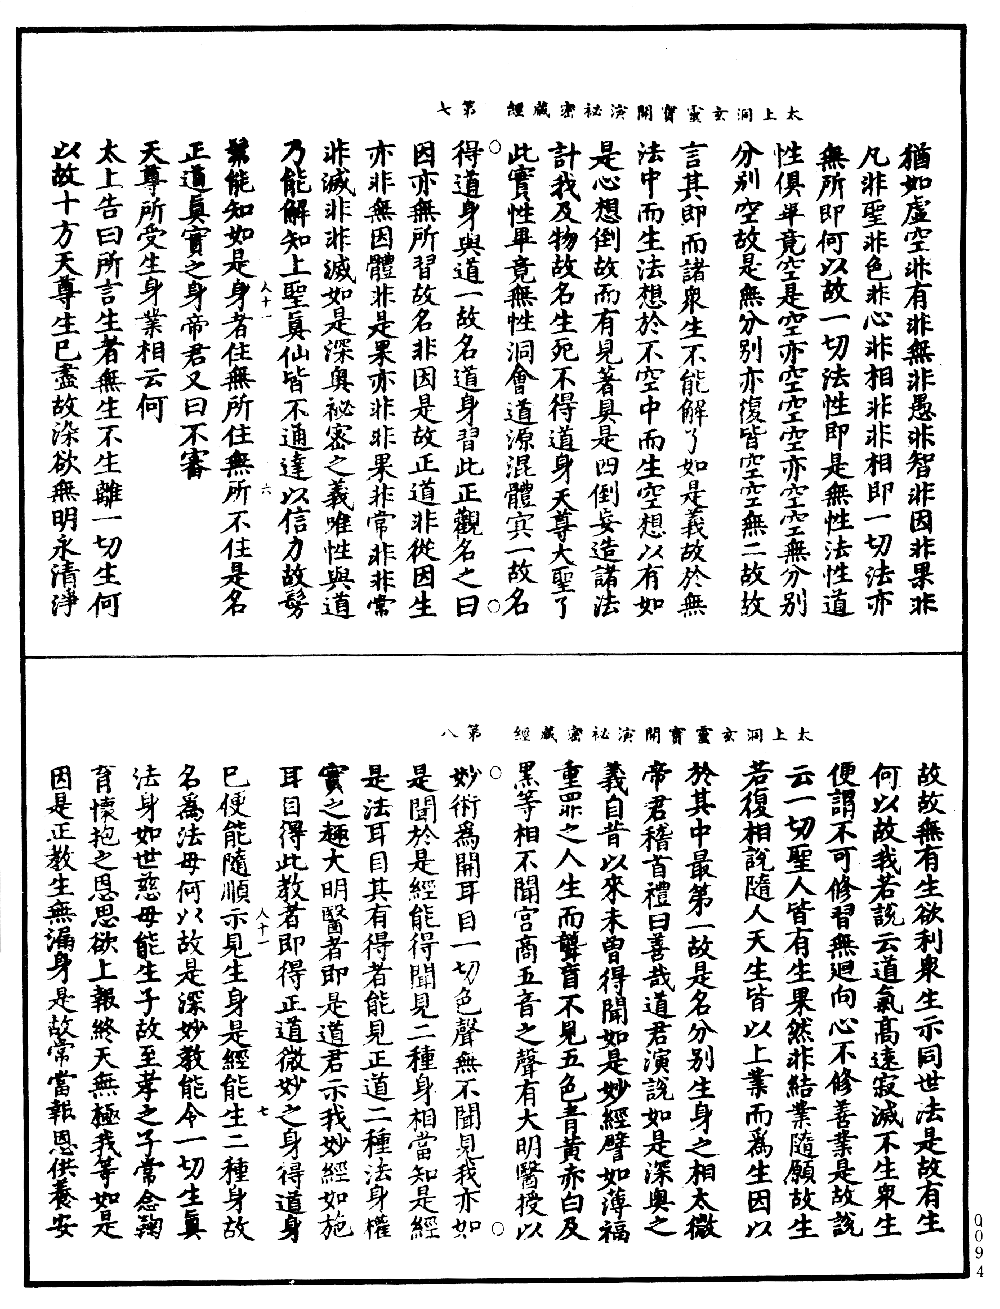 太上洞玄靈寶開演祕密藏經　第七
猶如虛空非有非無非愚非智非因非果非
凡非聖非色非心非相非非相即一切法亦
無所即何以故一切法性即是無性法性道
性俱畢竟空是空亦空空空亦空空無分別
分別空故是無分別亦復皆空空無二故故
言其即而諸衆生不能解了如是義故於無
法中而生法想於不空中而生空想以有如
是心想倒故而有見著具是四倒妄造諸法
計我及物故名生死不得道身天尊大聖了
此實性畢竟無性洞會道源混體冥一故名
得道身與道一故名道身習此正觀名之曰
因亦無所習故名非因是故正道非從因生
亦非無因體非是果亦非非果非常非非常
非滅非非滅如是深奥祕密之義唯性與道
乃能解知上聖眞仙皆不通達以信力故髣
髴能知如是身者住無所住無所不住是名
正道眞實之身帝君又曰不審
天尊所受生身業相云何
太上告曰所言生者無生不生離一切生何
以故十方天尊生已盡故染欲無明永清淨
人十一　六
太上洞玄靈寶開演祕密藏經　第八
故故無有生欲利衆生示同世法是故有生
何以故我若說云道氣高遠寂滅不生衆生
便謂不可修習無迴向心不修善業是故說
云一切聖人皆有生果然非結業隨願故生
若復相說隨人天生皆以上業而爲生因以
於其中最第一故是名分別生身之相太微
帝君稽首禮曰善哉道君演說如是深奥之
義自昔以來未曾得聞如是妙經譬如薄福
重罪之人生而聾盲不見五色青黃赤白及
黑等相不聞宫商五音之聲有大明醫授以
妙術爲開耳目一切色聲無不聞見我亦如
是聞於是經能得聞見二種身相當知是經
是法耳目其有得者能見正道二種法身權
實之趣大明醫者即是道君示我妙經如施
耳目得此教者即得正道微妙之身得道身
已便能隨順示見生身是經能生二種身故
名爲法母何以故是深妙教能令一切生眞
法身如世慈母能生子故至孝之子常念鞠
育懷抱之恩思欲上報終天無極我等如是
因是正教生無漏身是故常當報恩供養安
人十一　七
0094